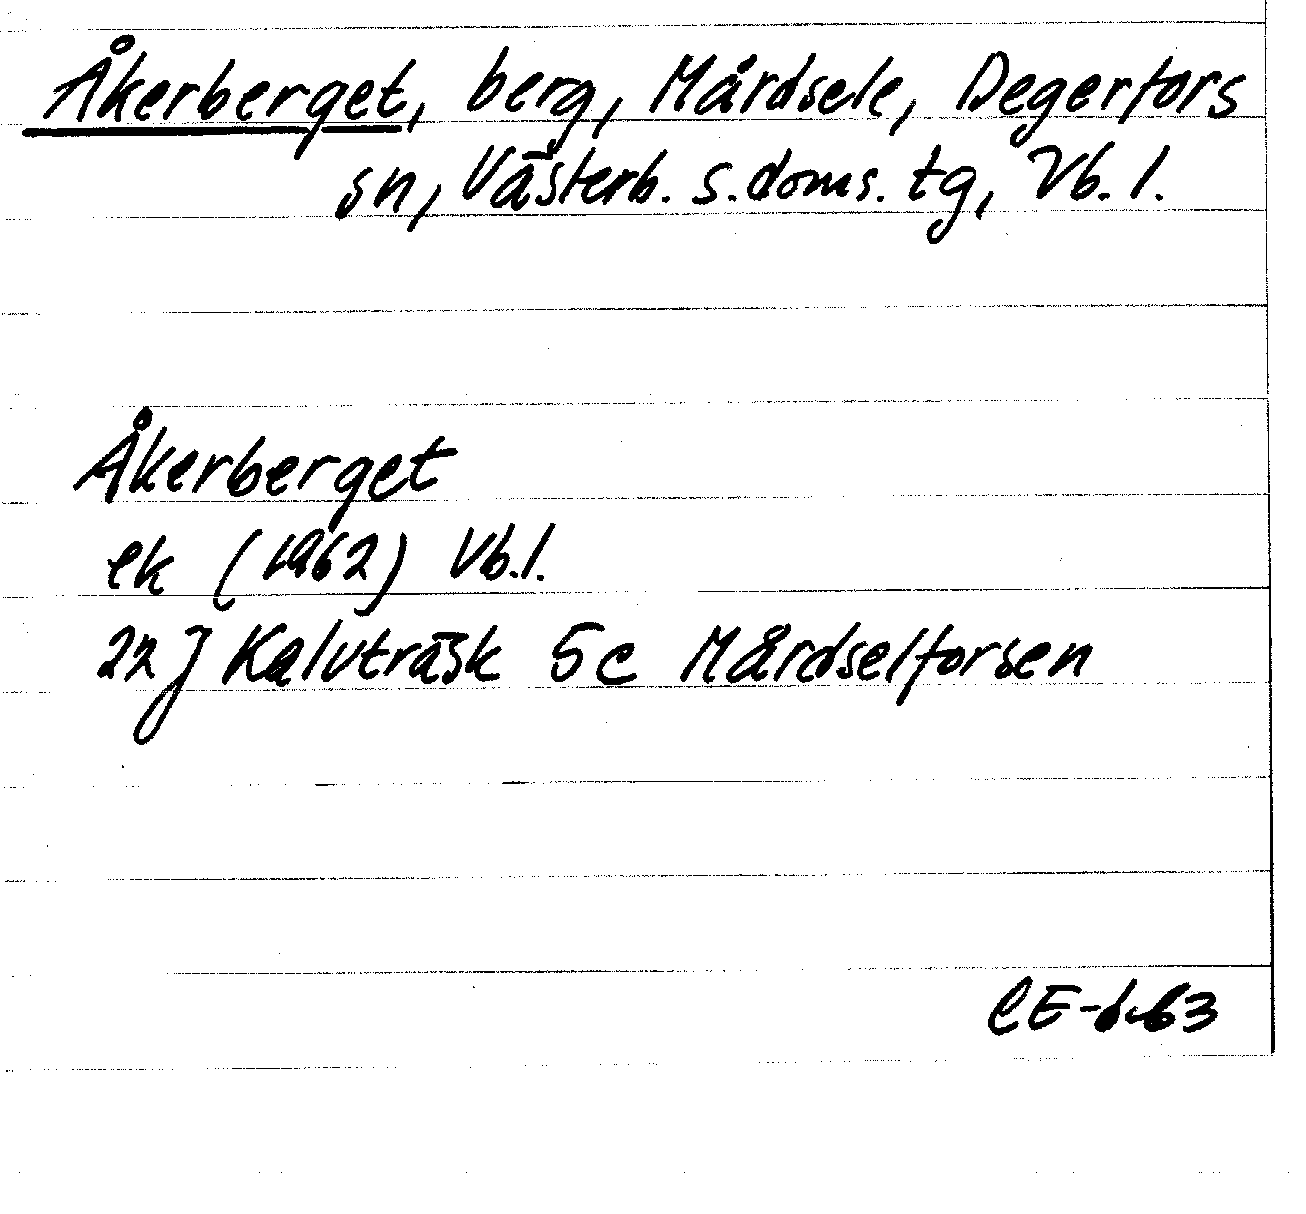 Åkerberget, berg, Mårdsele, Degerfors
sn, Västerb. s. doms. tg, Vb. l.
Åkerberget
ek (1962) Vb. l.
22 J Kalvträsk 5c Mårdselforsen